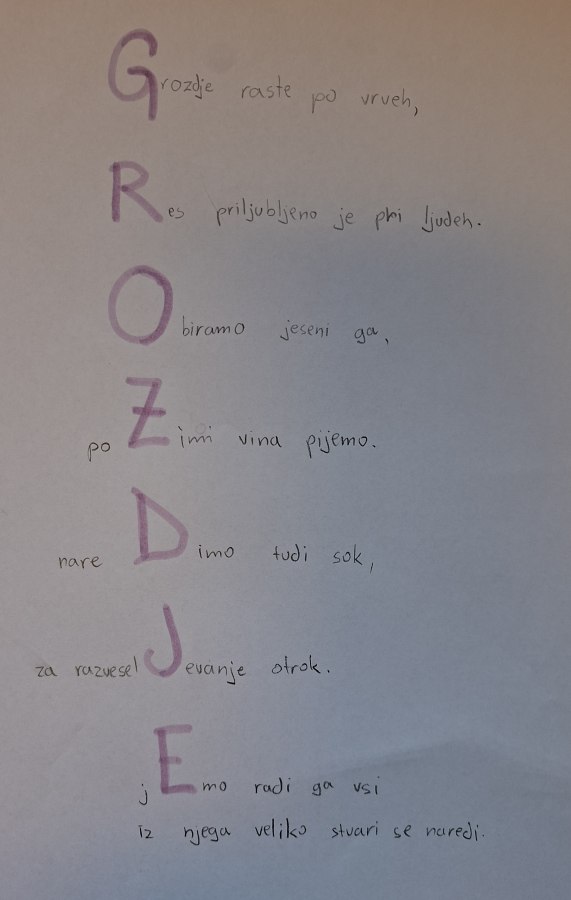 Grozdje raste po vrveh,
Res priljubljeno je pri ljudeh.
Obiramo jeseni ga,
po Zimi vina pijemo.
nareDimo tudi sok,
za razveselJevanje otrok.
jEmo radi ga vsi
iz njega veliko stvari se naredi.